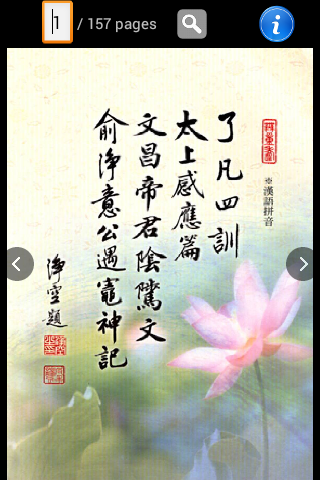 1 / 157 pages
※漢語拼音
了凡四訓
太上感應篇
文昌帝君陰騭文
俞淨意公遇竈神記
淨空題